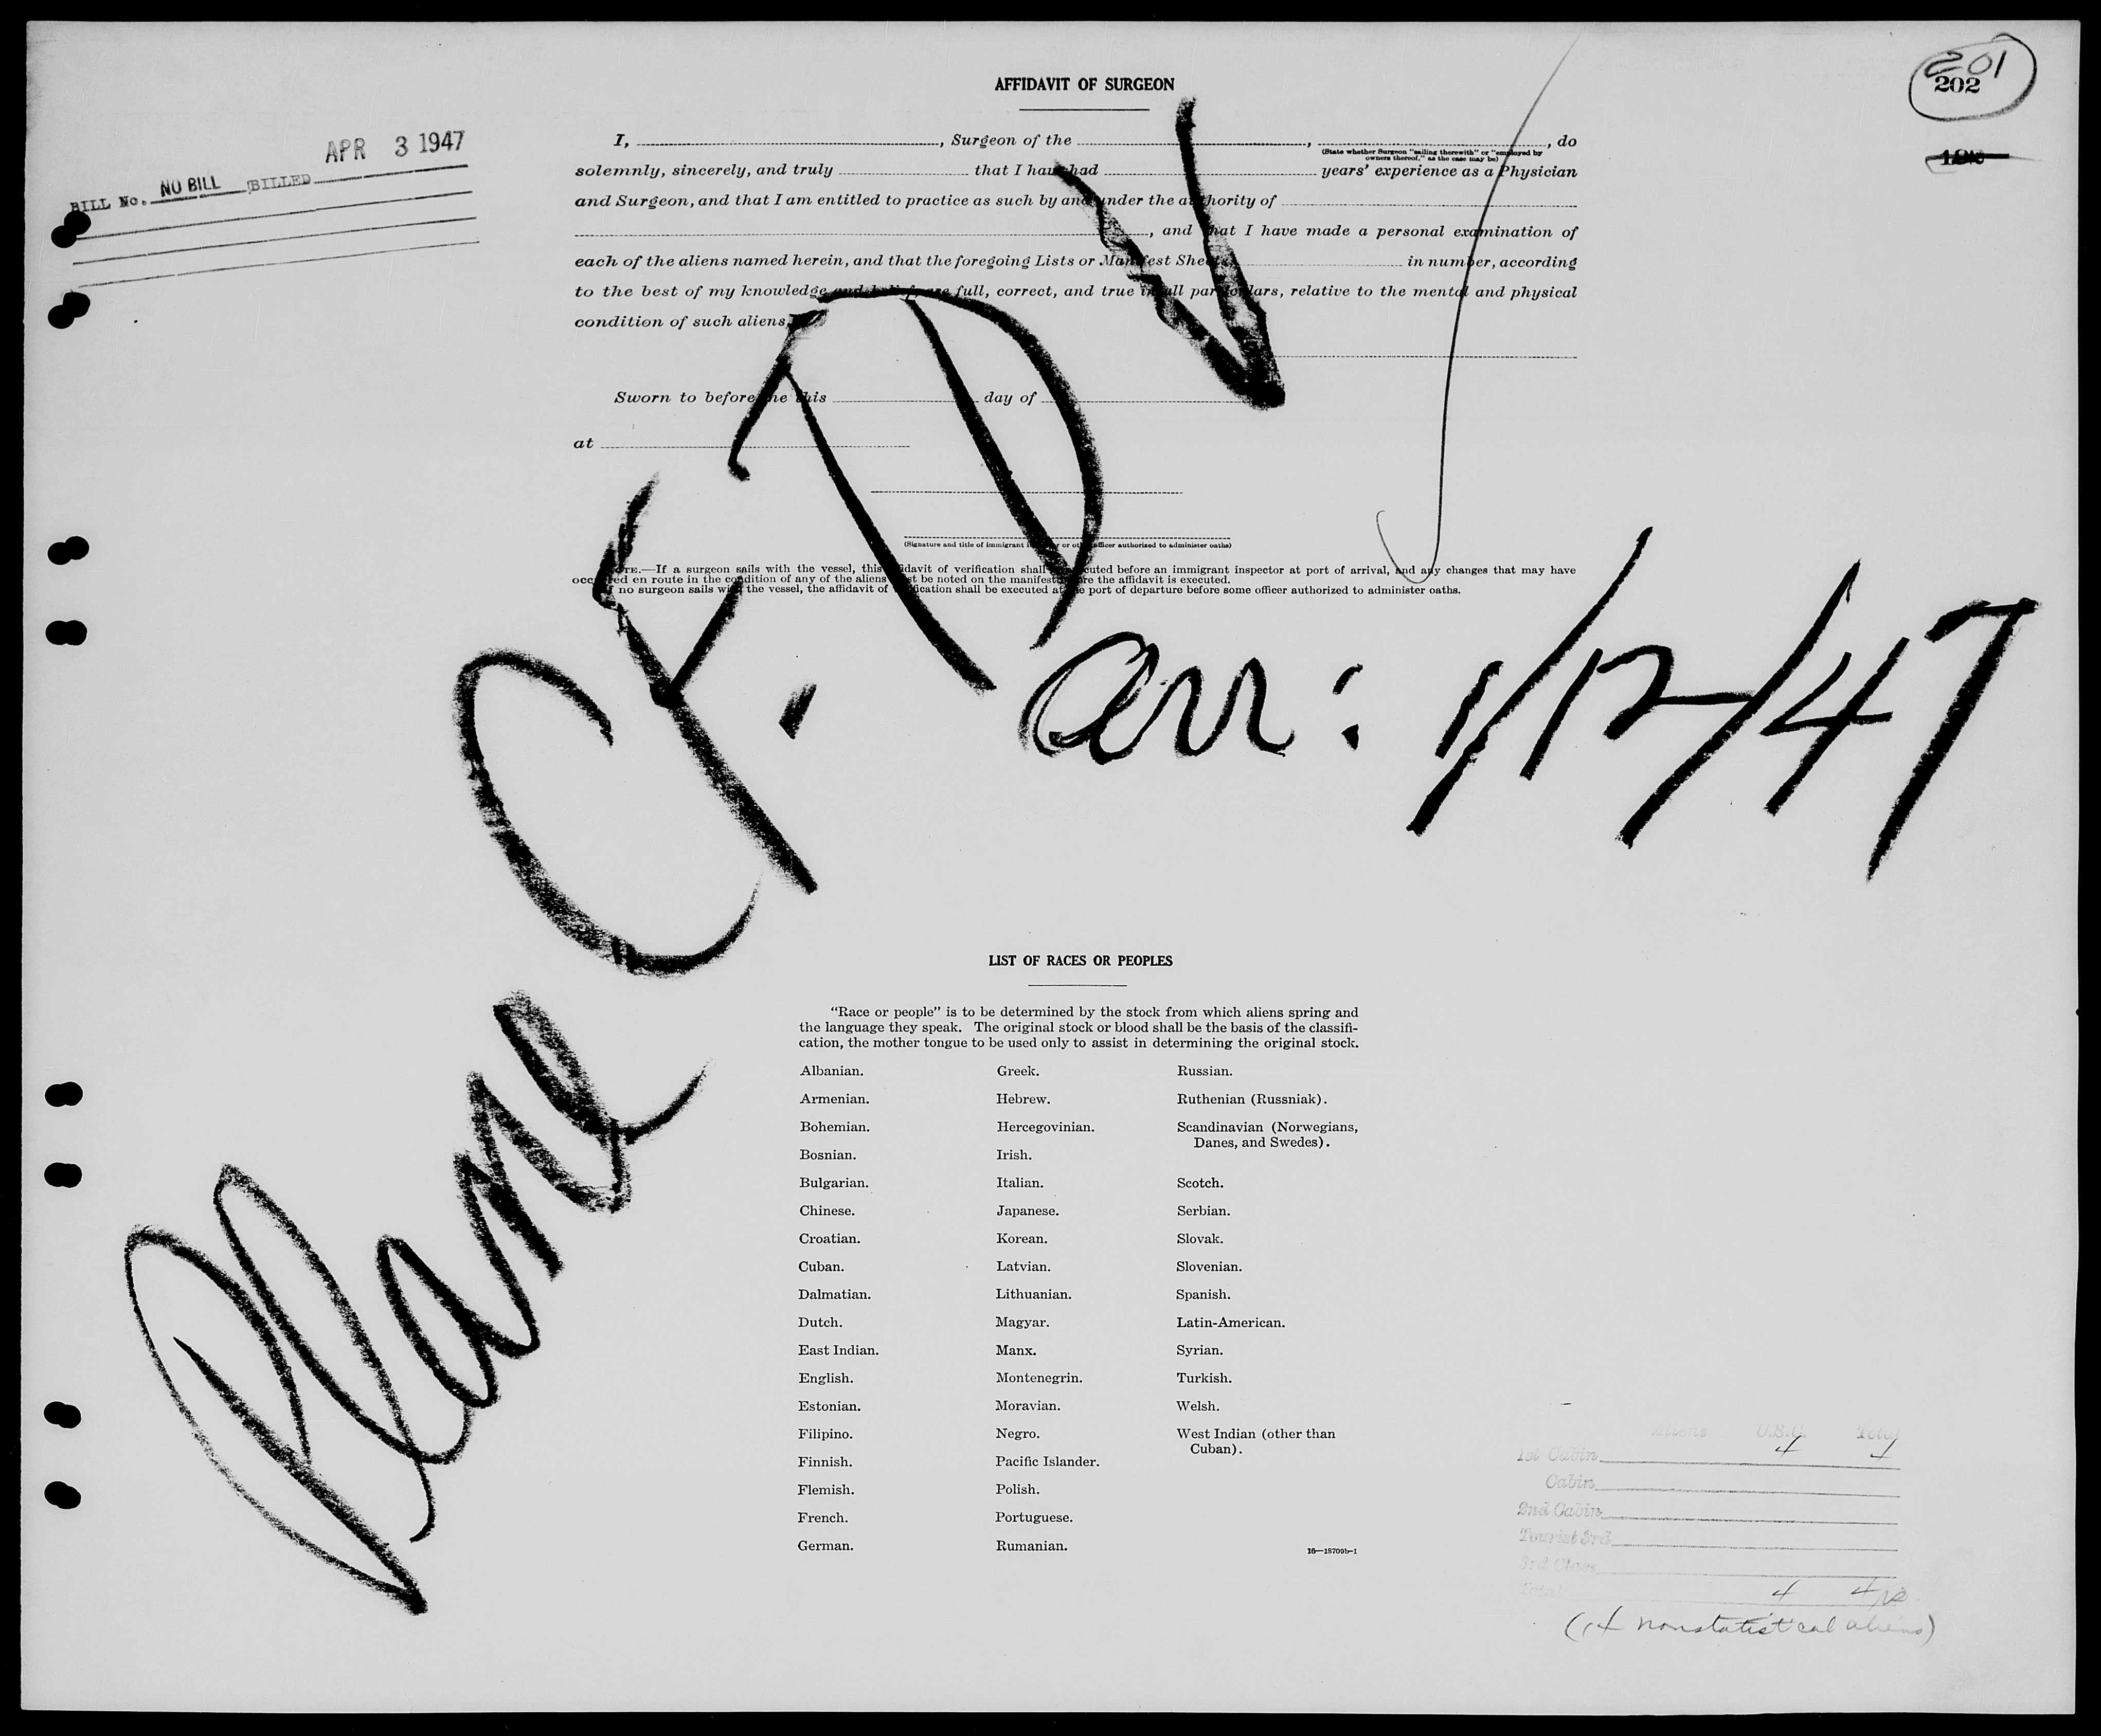 AFFIDAVIT OF SURGEON
201
202
APR 3 1947
BILL No. NO BILL BILLED
I, , Surgeon of the , , do
(State whether Surgeon "sailing therewith" or "employed by
owners thereof," as the case may be)
solemnly, sincerely, and truly that I have had years' experience as a Physician
and Surgeon, and that I am entitled to practice as such by and under the authority of
, and that I have made a personal examination of
each of the aliens named herein, and that the foregoing Lists or Manifest Sheets, in number, according
to the best of my knowledge and belief, are full, correct, and true in all particulars, relative to the mental and physical
condition of such aliens.
Sworn to before me this day of
at
(Signature and title of immigrant inspector or other officer authorized to administer oaths)
NOTE.—If a surgeon sails with the vessel, this affidavit of verification shall be executed before an immigrant inspector at port of arrival, and any changes that may have
occurred en route in the condition of any of the aliens must be noted on the manifest before the affidavit is executed.
If no surgeon sails with the vessel, the affidavit of verification shall be executed at the port of departure before some officer authorized to administer oaths.
Plane CF. DV
arr: 1/12/47
LIST OF RACES OR PEOPLES
"Race or people" is to be determined by the stock from which aliens spring and
the language they speak. The original stock or blood shall be the basis of the classifi-
cation, the mother tongue to be used only to assist in determining the original stock.
Albanian. Greek. Russian.
Armenian. Hebrew. Ruthenian (Russniak).
Bohemian. Hercegovinian. Scandinavian (Norwegians,
Danes, and Swedes).
Bosnian. Irish.
Bulgarian. Italian. Scotch.
Chinese. Japanese. Serbian.
Croatian. Korean. Slovak.
Cuban. Latvian. Slovenian.
Dalmatian. Lithuanian. Spanish.
Dutch. Magyar. Latin-American.
East Indian. Manx. Syrian.
English. Montenegrin. Turkish.
Estonian. Moravian. Welsh.
Filipino. Negro. West Indian (other than
Cuban).
Finnish. Pacific Islander.
Flemish. Polish.
French. Portuguese.
German. Rumanian.
16—18709b-1
Aliens U.S.C. Total
1st Cabin 4 4
Cabin
2nd Cabin
Tourist 3rd
3rd Class
Total 4 4
nonstatistical aliens)